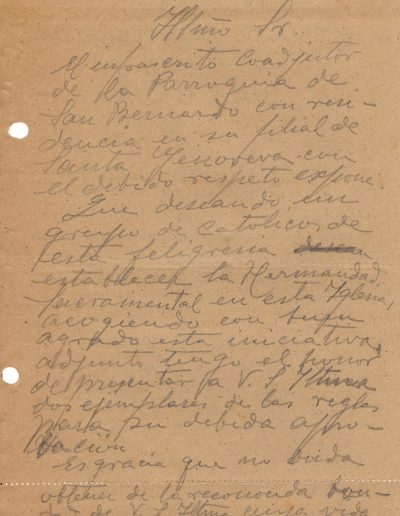 Iltmo Sr.
El infrascrito Coadjutor
de la Parroquia de
San Bernardo con resi-
dencia en su filial de
Santa Genoveva con
el debido respeto expone:
Que deseando un
grupo de católicos de
esta feligresia desean
establecer la Hermandad
Sacramental en esta Iglesia,
acogiendo con buen
agrado esta iniciativa,
adjunto tengo el honor
de presentar a V. S. Iltma
dos ejemplares de las reglas
para su debida apro-
bación
Es gracia que no duda
obtener de la reconocida bon-
dad de V. S. Iltma cuya vida